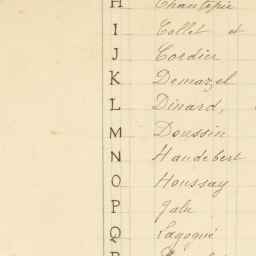 H Chantepie
I Collet et
J Cordier
K Demazel
L Dinard,
M Doussin
N Haudebert
O Houssay
P Jalu
Q Lagogué